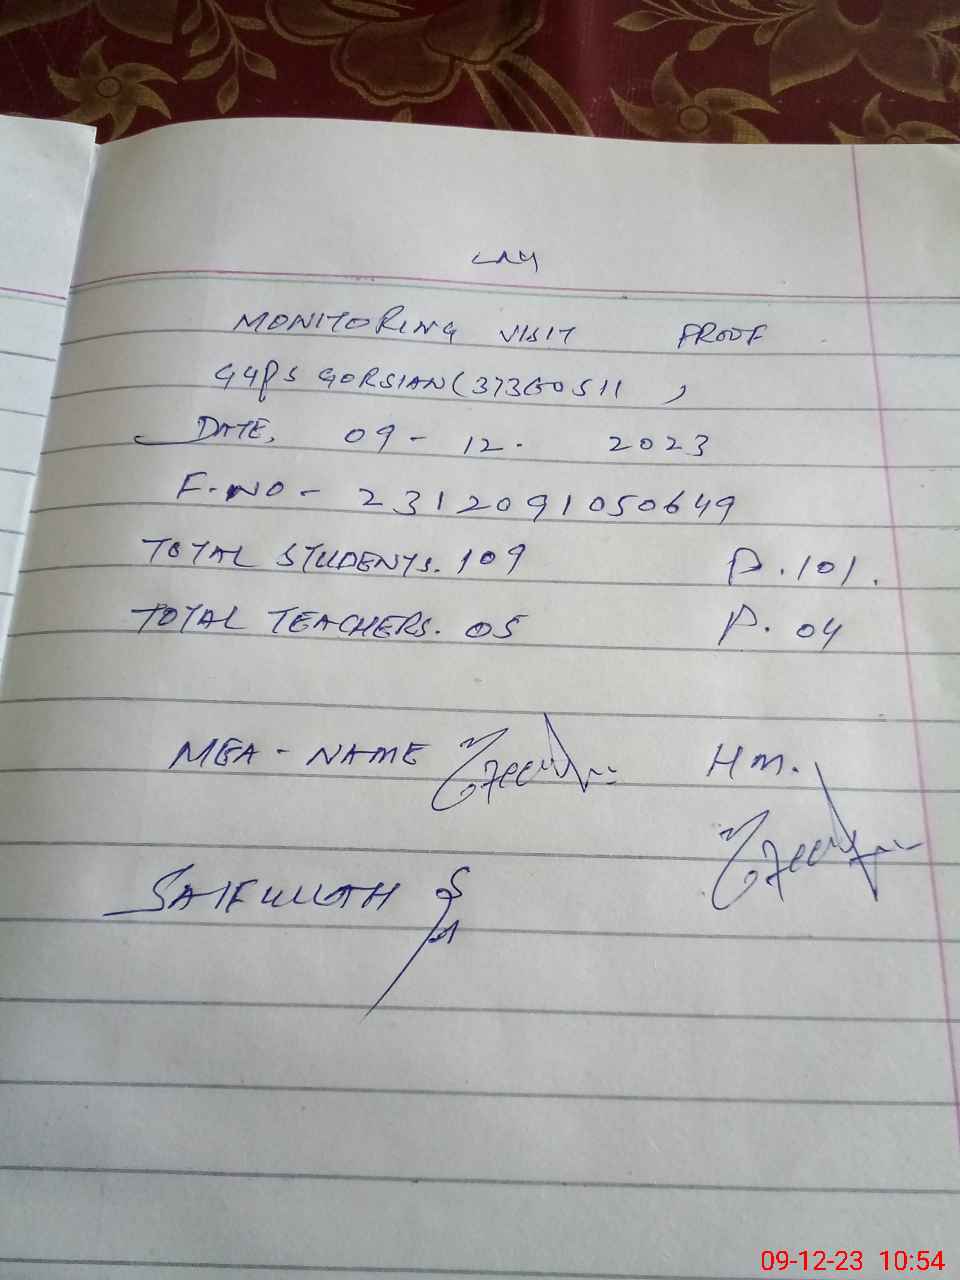 MONITORING VISIT PROOF
GGPS GORSIAN (37360511)
DATE, 09 - 12. 2023
F. NO - 2312091050649
TOTAL STUDENTS. 109 P. 101.
TOTAL TEACHERS. 05 P. 04
MEA - NAME HM.
SAIFULLAH
09-12-23 10:54